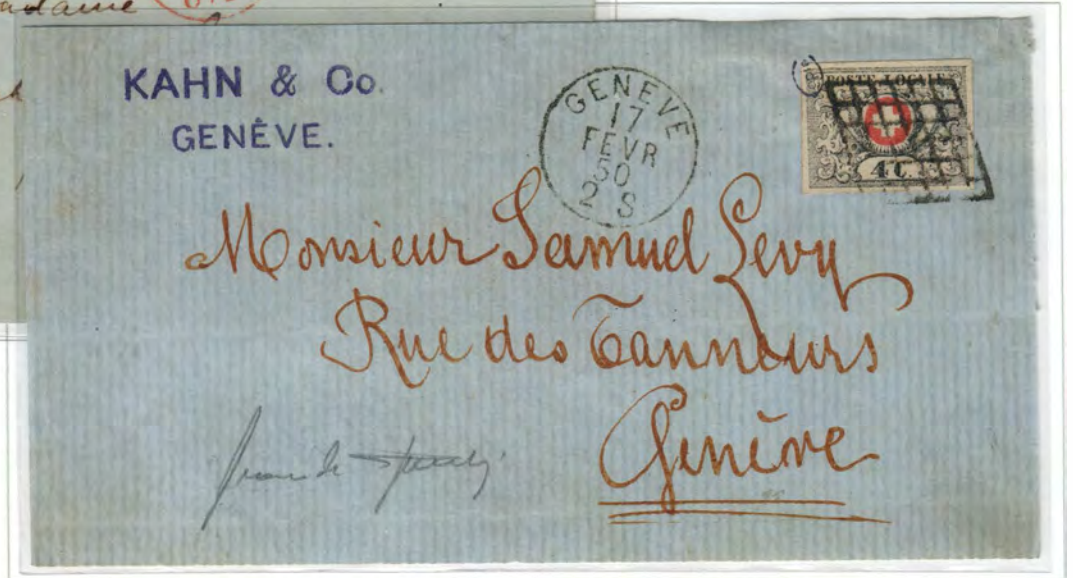 KAHN & Co.
GENÈVE.
GENÈVE
17
FEVR
50
2 S
POSTE LOCALE
4 C.
Monsieur Samuel Levy
Rue des Tanneurs
Genève